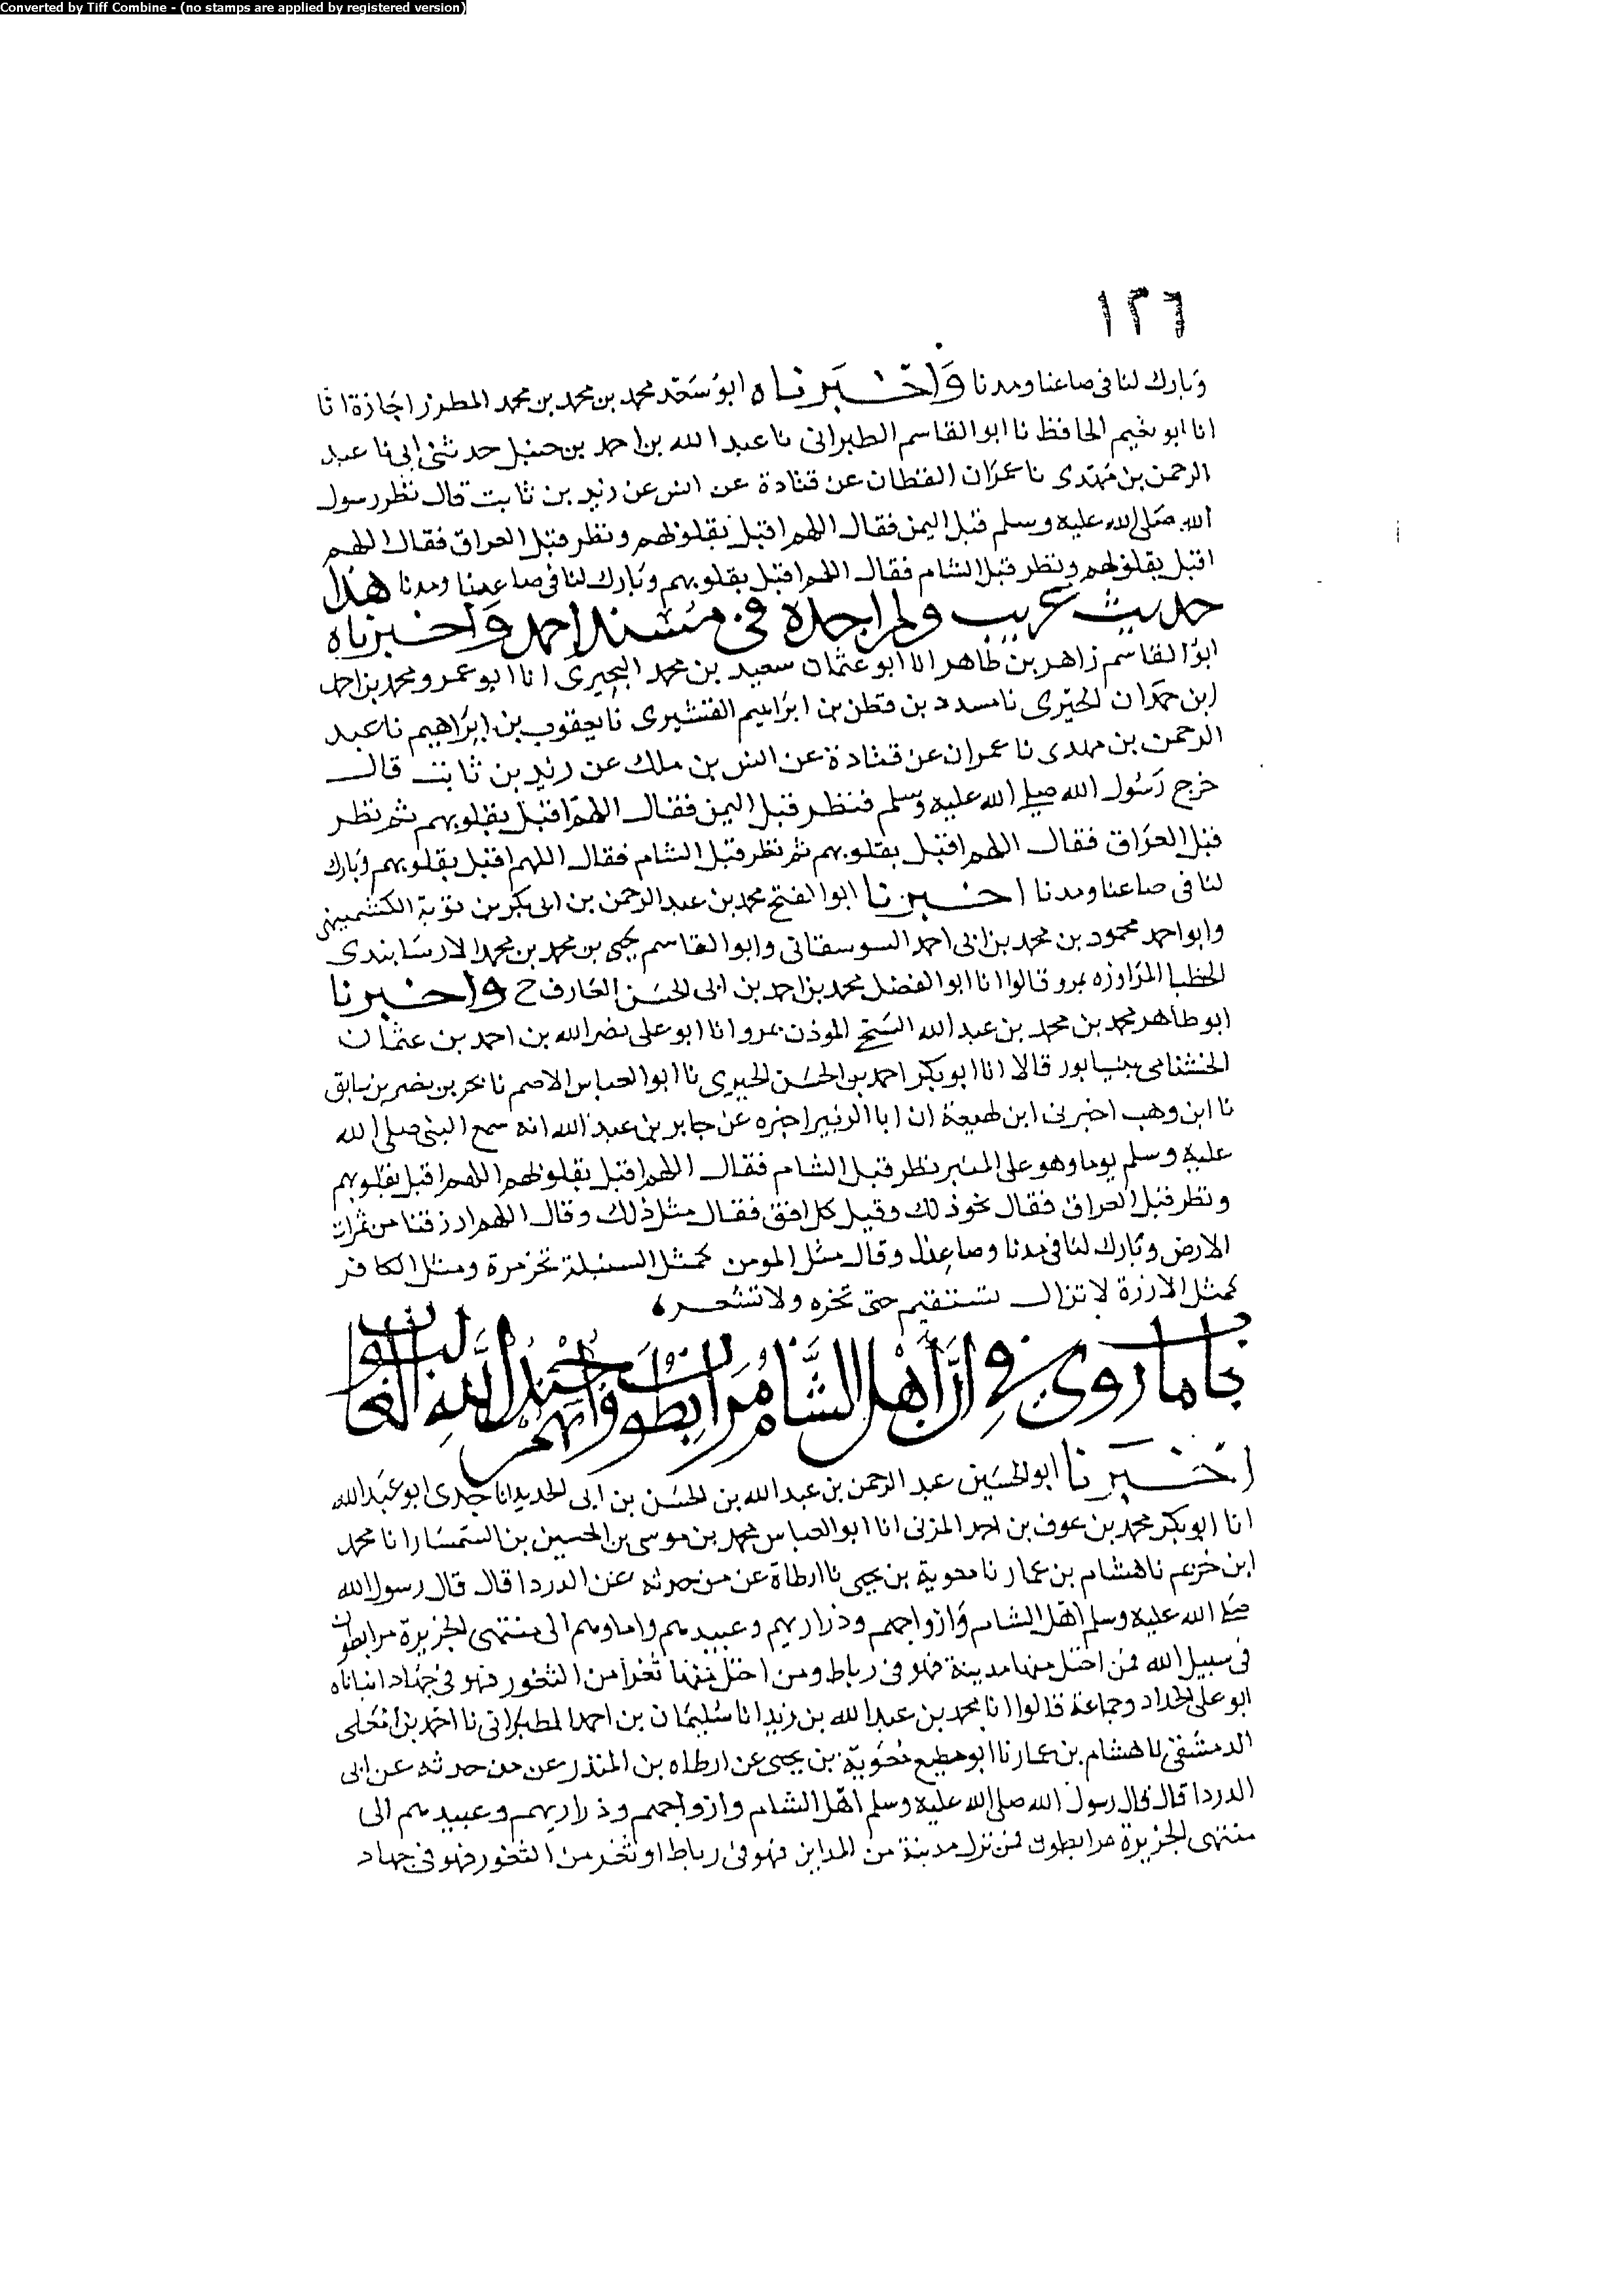 Converted by Tiff Combine - (no stamps are applied by registered version)
١٢٦
وبارك لنا في صاعنا ومدنا واخبرناه ابو سعد محمد بن محمد بن محمد المطرز اجازة انا
انا ابو نعيم الحافظ نا ابو القاسم الطبراني نا عبد الله بن احمد بن حنبل حدثني ابي نا عبد
الرحمن بن مهدى نا عمران القطان عن قتادة عن انس عن زيد بن ثابت قال نظر رسول
الله صلى الله عليه وسلم قبل اليمن فقال اللهم اقبل بقلوبهم ونظر قبل العراق فقال اللهم
اقبل بقلوبهم ونظر قبل الشام فقال اللهم اقبل بقلوبهم وبارك لنا في صاعنا ومدنا هذا
حديث غريب ولم اجده في مسند احمد واخبرناه
ابو القاسم زاهر بن طاهر انا ابو عثمان سعيد بن محمد البحيرى انا ابو عمرو محمد بن احمد
ابن حمدان الحيرى نا مسدد بن قطن بن ابراهيم القشيرى نا يعقوب بن ابراهيم نا عبد
الرحمن بن مهدى نا عمران عن قتادة عن انس بن ملك عن زيد بن ثابت قال
خرج رسول الله صلى الله عليه وسلم فنظر قبل اليمن فقال اللهم اقبل بقلوبهم ثم نظر
قبل العراق فقال اللهم اقبل بقلوبهم ثم نظر قبل الشام فقال اللهم اقبل بقلوبهم وبارك
لنا في صاعنا ومدنا اخبرنا ابو الفتح محمد بن عبد الرحمن بن ابي بكر بن توبة الكشميهنى
وابو احمد محمود بن محمد بن ابي احمد السوسقاني وابو القاسم يحيى بن محمد بن محمد الارسابندى
الخطبا المراوزه بمرو قالوا انا ابو الفضل محمد بن احمد بن ابي الحسن العارف ح واخبرنا
ابو طاهر محمد بن محمد بن عبد الله السنجي الموذن بمرو انا ابو على نصر الله بن احمد بن عثمان
الخشنامى بنيسابور قالا انا ابو بكر احمد بن الحسن الحيرى نا ابو العباس الاصم نا بحر بن نصر بن سابق
نا ابن وهب اخبرنى ابن لهيعة ان ابا الزبير اخبره عن جابر بن عبد الله انه سمع النبى صلى الله
عليه وسلم يوما وهو على المنبر نظر قبل الشام فقال اللهم اقبل بقلوبهم اللهم اقبل بقلوبهم
ونظر قبل العراق فقال نحو ذلك وقبل كل افق فقال مثل ذلك وقال اللهم ارزقنا من ثمرات
الارض وبارك لنا في مدنا وصاعنا وقال مثل المومن كمثل السنبلة تخر مرة ومثل الكافر
كمثل الارزة لا تزال تستقيم حتى تخر ولا تشعر
باب ما روي في ان اهل الشام مرابطون وانهم جند الله الغالبون
اخبرنا ابو الحسين عبد الرحمن بن عبد الله بن الحسن بن ابي الحديد انا جدى ابو عبد الله
انا ابو بكر محمد بن عوف بن احمد المزنى انا ابو العباس محمد بن موسى بن الحسين بن السمسار انا محمد
ابن خريم نا هشام بن عمار نا معوية بن يحيى نا ارطاة عن من حدثه عن الدردا قال قال رسول الله
صلى الله عليه وسلم اهل الشام وازواجهم وذراريهم وعبيدهم واماوهم الى منتهى الجزيرة مرابطون
في سبيل الله فمن احتل منها مدينة فهو في رباط ومن احتل منها ثغرا من الثغور فهو في جهاد انباناه
ابو على الحداد وجماعة قالوا انا محمد بن عبد الله بن ريذه انا سليمان بن احمد الطبراني نا احمد بن المعلى
الدمشقى نا هشام بن عمار نا ابو مطيع معوية بن يحيى عن ارطاه بن المنذر عن من حدثه عن ابى
الدردا قال قال رسول الله صلى الله عليه وسلم اهل الشام وازواجهم وذراريهم وعبيدهم الى
منتهى الجزيرة مرابطون فمن نزل مدينة من المداين فهو في رباط او ثغر من الثغور فهو في جهاد